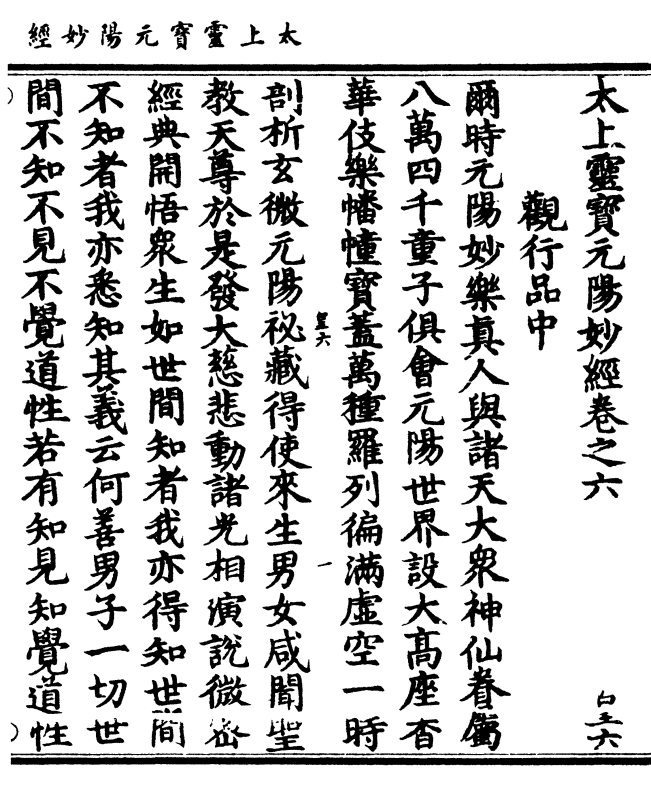 太上靈寶元陽妙經
太上靈寶元陽妙經卷之六
觀行品中
爾時元陽妙樂真人與諸天大衆神仙眷屬
八萬四千童子俱會元陽世界設大高座香
華伎樂幡幢寶蓋萬種羅列徧滿虛空一時
剖析玄微元陽祕藏得使來生男女咸聞聖
教天尊於是發大慈悲動諸光相演說微密
經典開悟衆生如世間知者我亦得知世間
不知者我亦悉知其義云何善男子一切世
間不知不見不覺道性若有知見知覺道性